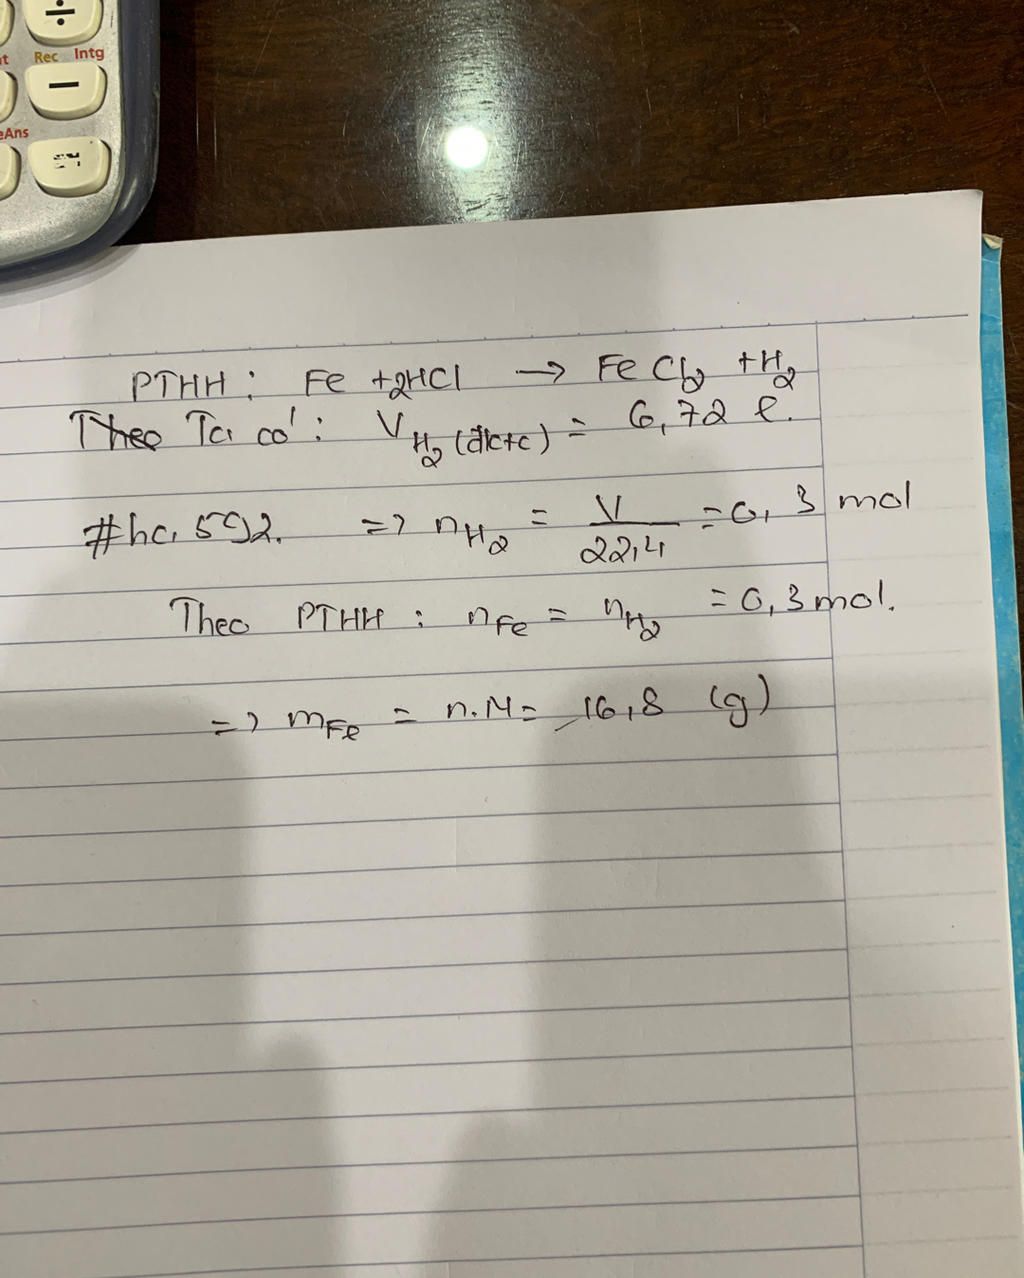 ÷
Rec Intg
−
eAns
PTHH : Fe +2HCl → FeCl2 +H2
Theo Ta có : V H2 (đktc) = 6,72 l.
#ha, 592. => nH2 = V/22,4 = 0,3 mol
Theo PTHH : nFe = nH2 = 0,3 mol.
=> mFe = n.M = 16,8 (g)